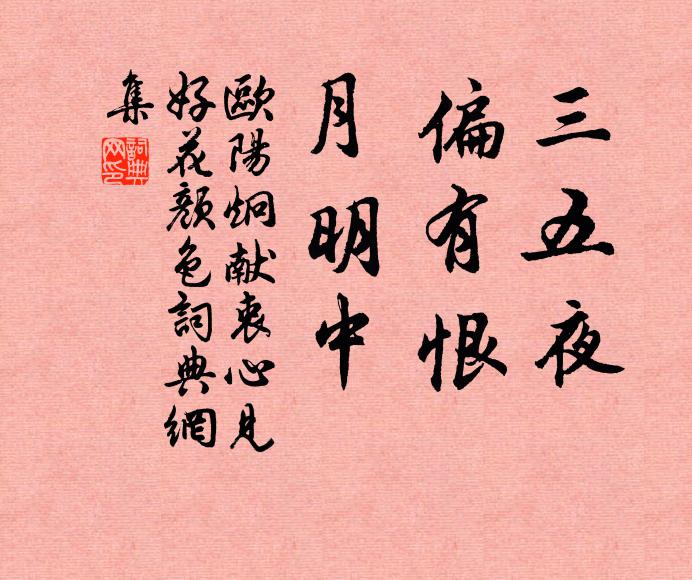 三五夜
偏有恨
月明中
歐陽炯献衷心見
好花顔色詞典網
集
詞典
网印